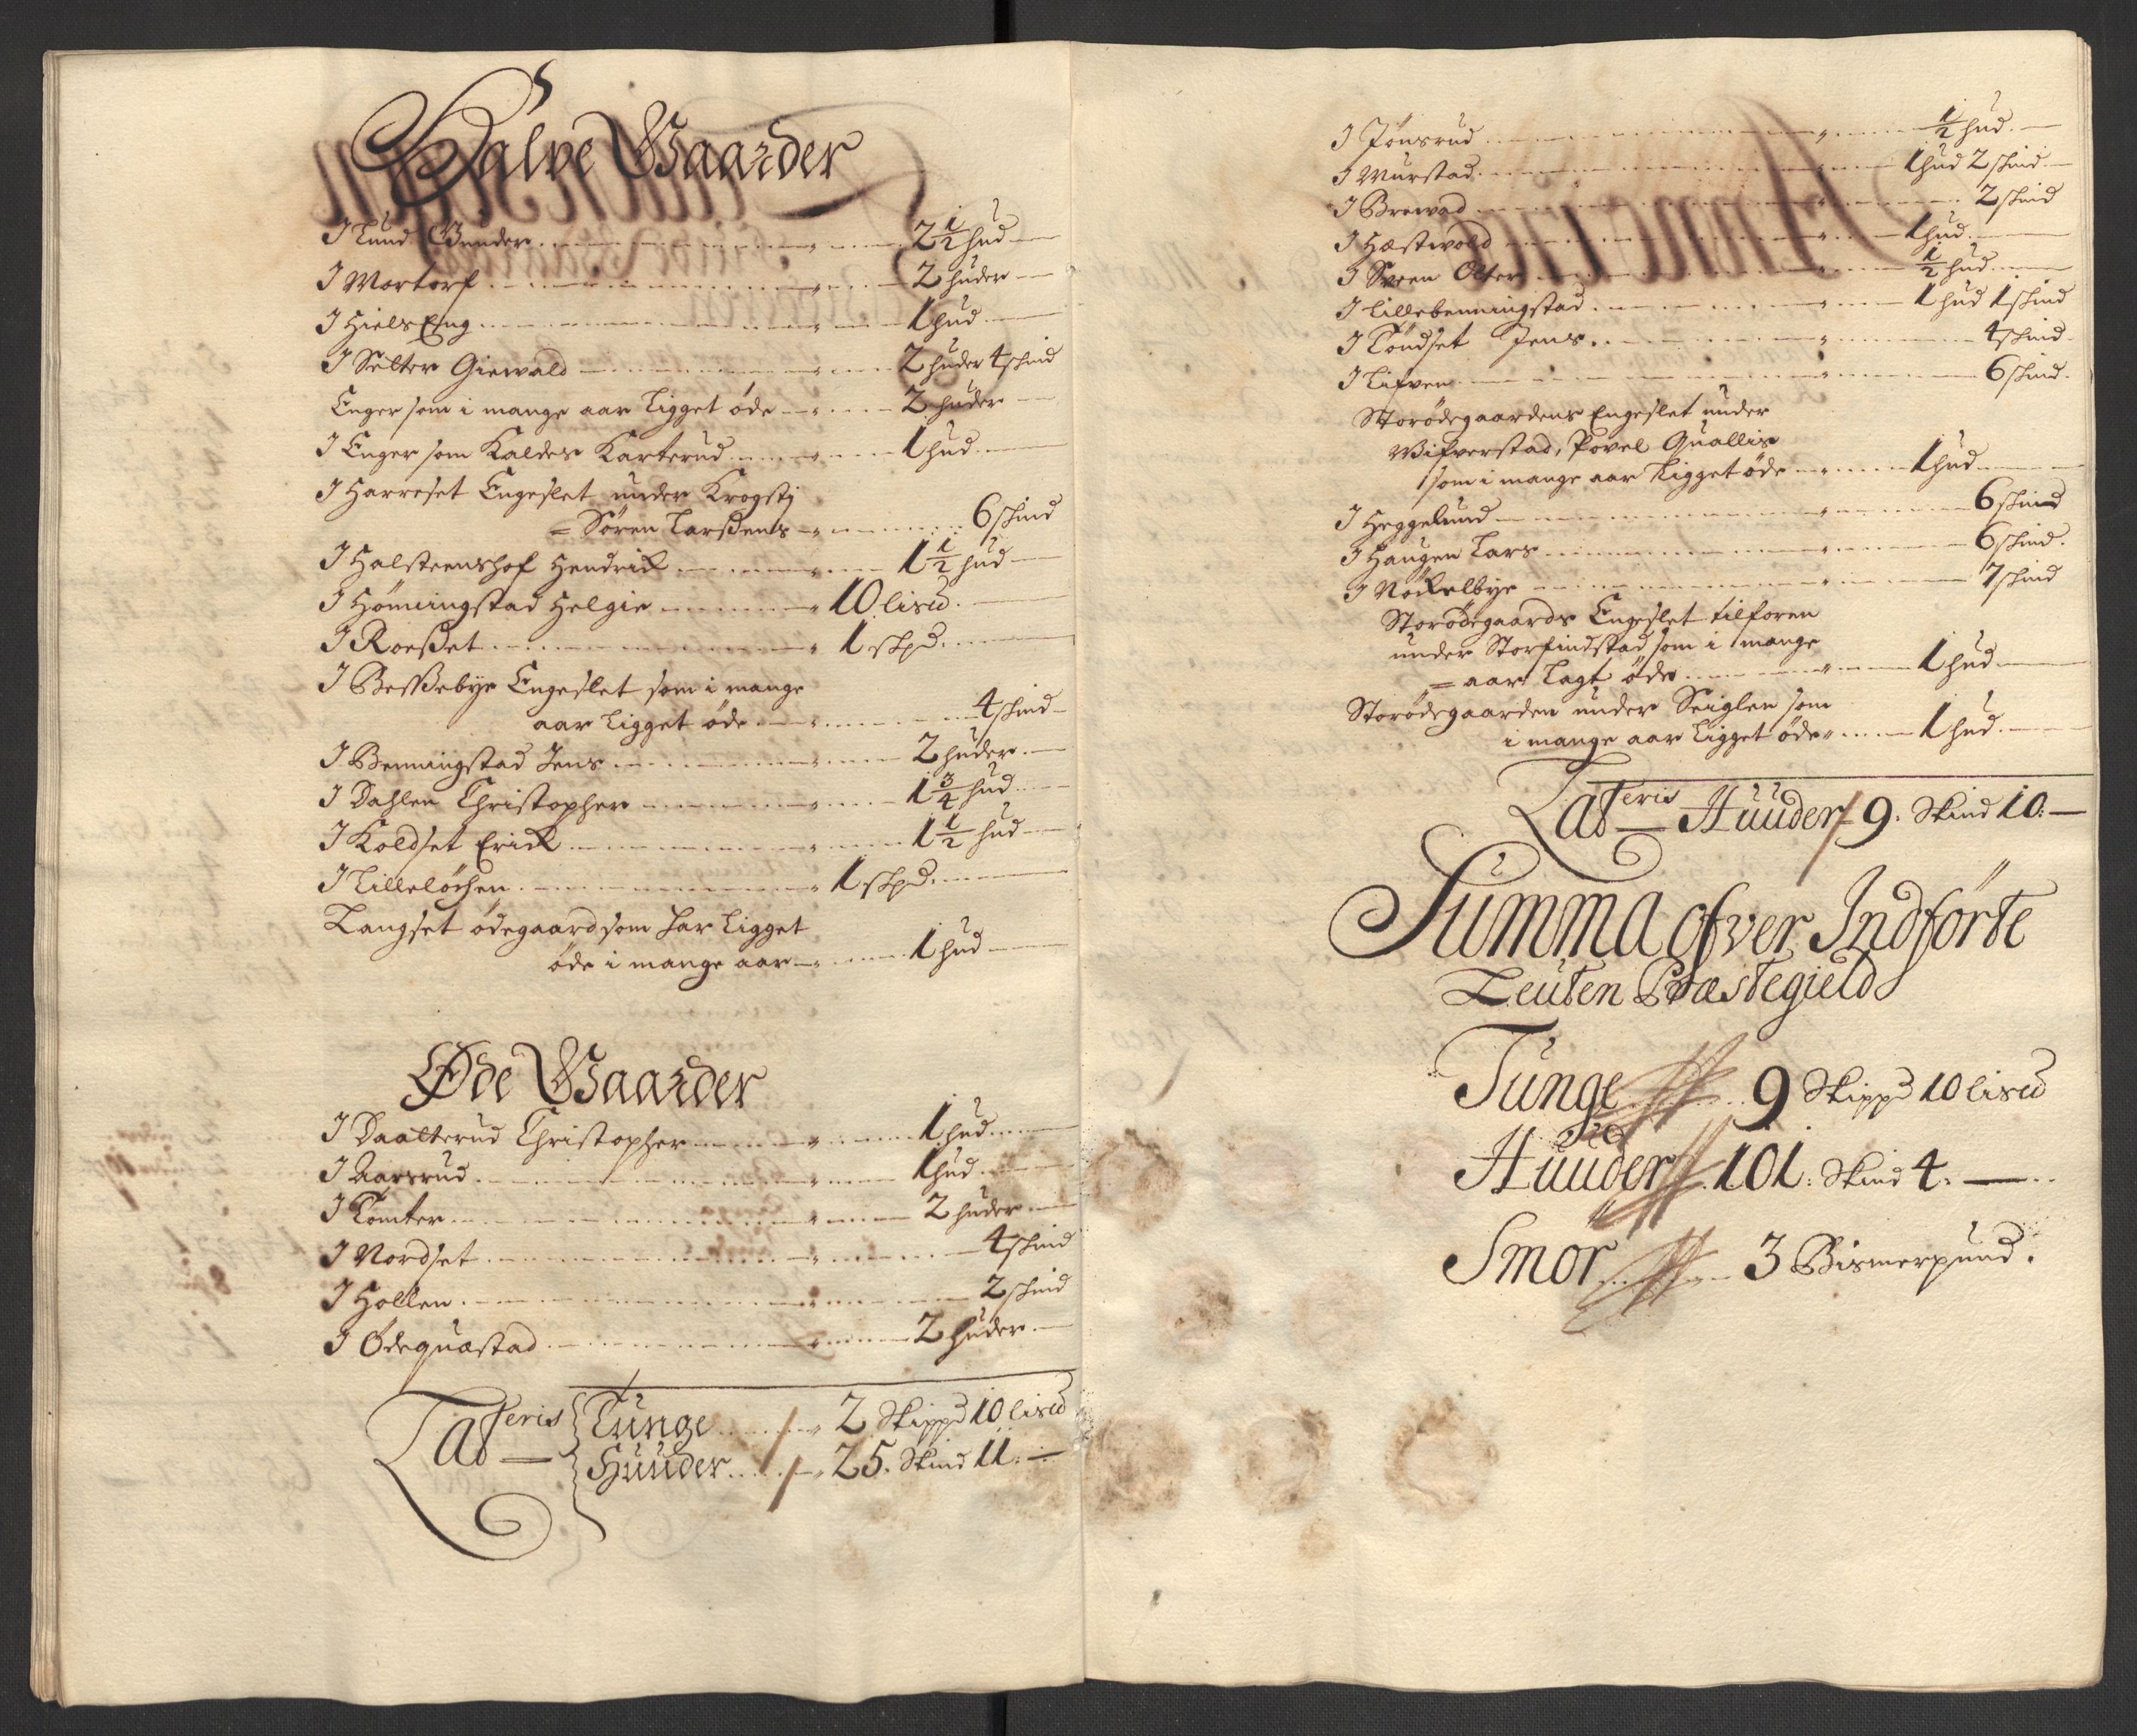 Halve Gaarder
I Lund Gunder 2 1/2 hud
I Mortorf 2 huder
I HielsEng 1 hud
I Selter Giewald 2 huder 4 skind
Enger som i mange aar ligget øde 2 huder
I Enger som Kaldes Karterud 1 hud
I Harreset Engeslet under Krogstj
= Søren Larssens 6 skind
I Halsteenshof Hendrick 1 1/2 hud
I Hømiingstad Helgie 10 lisd.
I Roesset 1 skpd.
I Bessebye Engeslet som i mange
aar ligget øde 4 skind
I Benningstad Jens 2 huder
I Dahlen Christopher 1 3/4 hud
I Koldset Erick 1 1/2 hud
I Lilleløchen 1 skpd.
Langset ødegaard som har ligget
øde i mange aar 1 hud
Øde Gaarder
I Daalterud Christopher 1 hud
I Aarsrud 1 hud
I Tomter 2 huder
I Nordset 4 skind
I Hollen 2 skind
I Ødequastad 2 huder
Lateris Tunge 2 Skippd 10 lisd
Huuder 25. Skind 11.
I Jönsrud 1/2 hud.
I Murstad 1 hud 2 skind
I Brevad 2 skind
I Hæstvold 1 hud
I Sveen Olter 1/2 hud
I Lillebenningstad 1 hud 1 skind
I Töndset Jens 4 skind
I Lifven 6 skind.
Storödegaardens Engeslet under
Wifverstad, Povel Quallis
som i mange aar ligget øde 1 hud
I Heggelund 6 skind
I Haugen Lars 6 skind.
I Nöckelbye 7 skind
Storödegaards Engeslet tilforen
under Storfindstad som i mange
= aar lagt öde 1 hud
Storödegaarden under Seiglen som
i mange aar ligget øde 1 hud.
Lateris Huuder 9. Skind 10.
Summa ofver Indförte
Leuten Præstegield
Tunge 9 Skippd 10 lisd
Huuder 101. Skind 4.
Smör 3 Bismerpund.